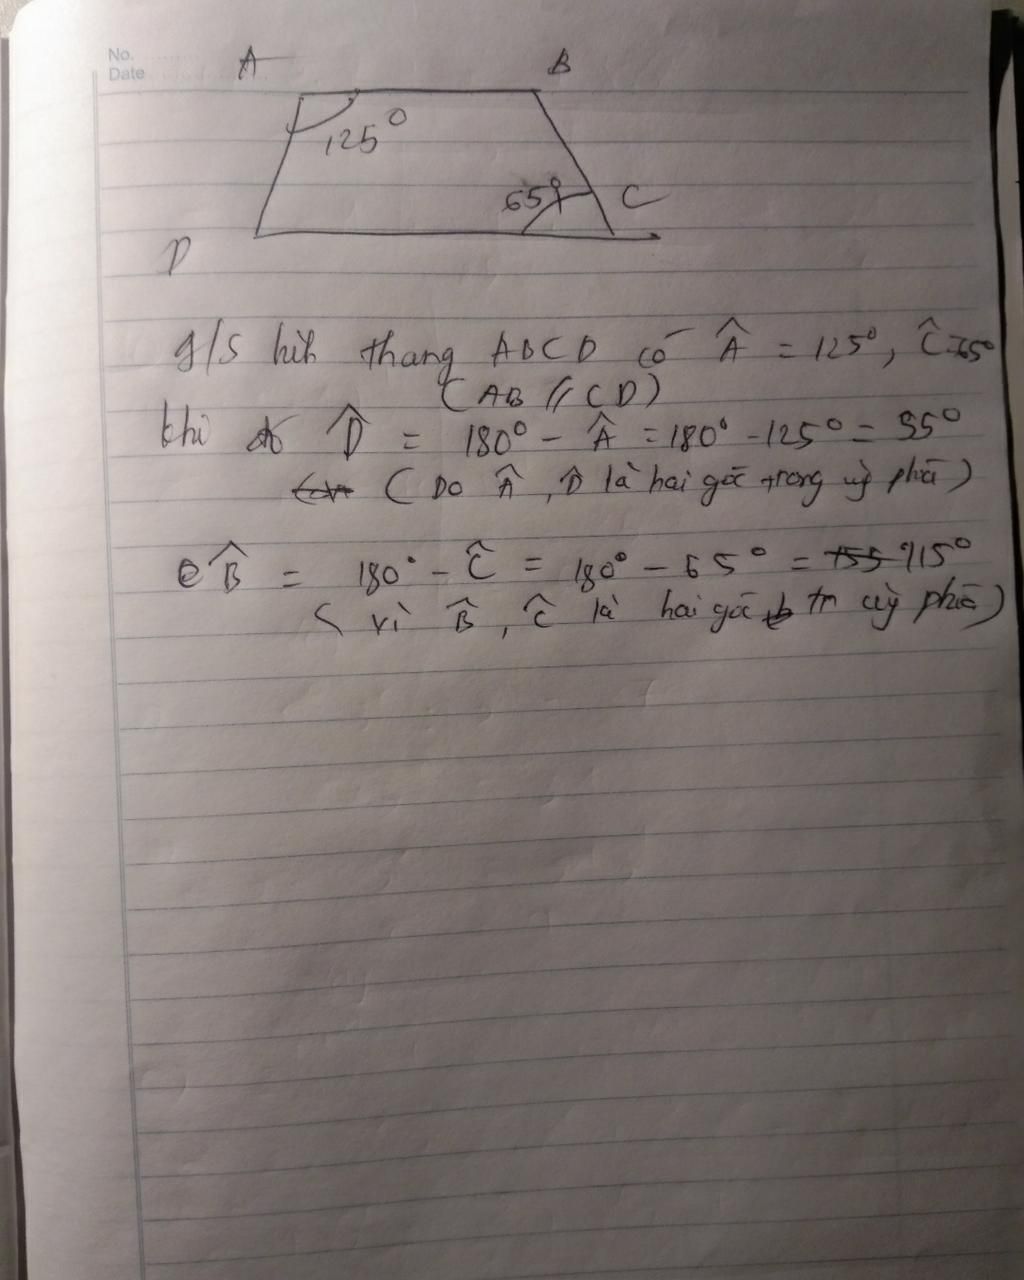 No.
Date
A
B
125°
65°
C
D
g/s hìh thang ABCD có Â = 125°, Ĉ=65°
(AB // CD)
khi đó D̂ = 180° - Â = 180° - 125° = 55°
(Do Â, D̂ là hai góc trong cùg phía)
B̂ = 180° - Ĉ = 180° - 65° = 115°
(vì B̂, Ĉ là hai góc tr cùg phía)